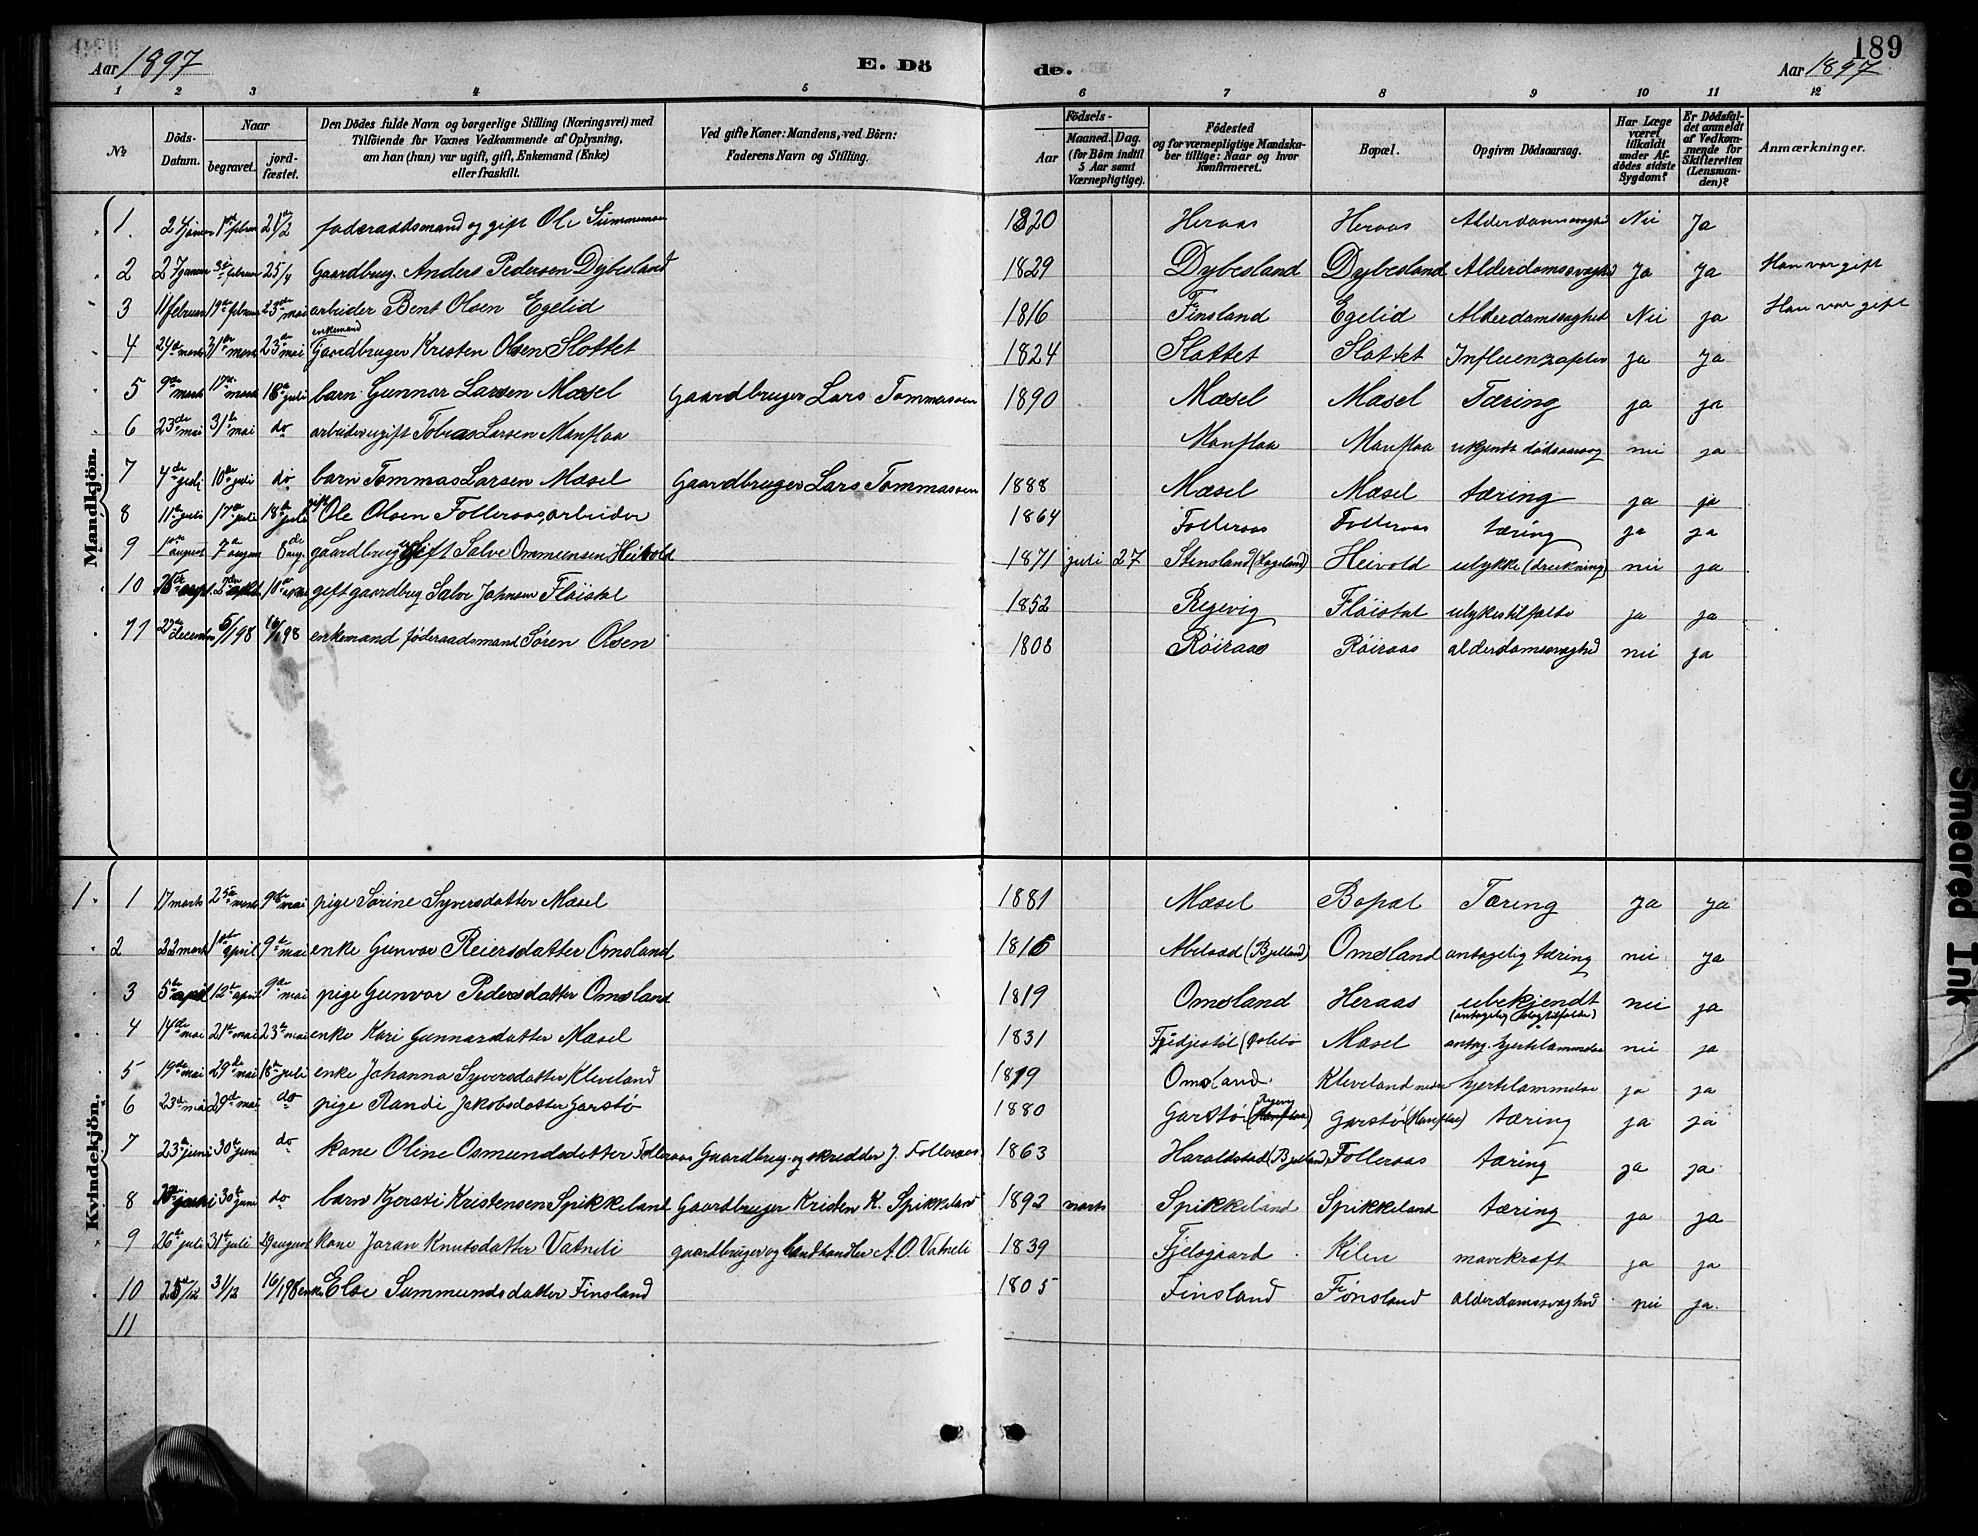 189
Aar 1897 E. Dö
de. Aar 1897
1 2 3 4 5 6 7 8 9 10 11 12
№
Döds-Datum.
Naar
begravet.
jordfæstet.
Den Dödes fulde Navn og borgerlige Stilling (Næringsvei) med
Tilföiende for Voxnes Vedkommende af Oplysning,
om han (hun) var ugift, gift, Enkemand (Enke)
eller fraskilt.
Ved gifte Koner: Mandens, ved Börn:
Faderens Navn og Stilling.
Födsels-
Aar
Maaned. Dag.
(for Börn indtil
5 Aar samt
Værnepligtige).
Födested
og for værnepligtige Mandska-
ber tillige: Naar og hvor
Konfirmeret.
Bopæl.
Opgiven Dödsaarsag.
Har Læge
været
tilkaldt
under Af-
dödes sidste
Sygdom?
Er Dödsfal-
det anmeldt
af Vedkom-
mende for
Skifteretten
(Lensman-
den)?
Anmærkninger.
Mandkjön.
1. 21/2 foderaadsmand og gift Ole 1820 Heraas Heraas Alderdomssvaghed Nei Ja
2 25/4 Gaardbrug. Anders Pedersen Dybesland 1829 Dybesland Dybesland Alderdomssvaghed Ja Ja Han var gift
3 11 februar 19de februar 23de mai arbeider Bent Olsen Egelid 1816 Finsland Egelid Alderdomssvaghed Nei ja Han var gift
enkemand
4 23de mai Gaardbruger Kristen Olsen Slottet 1824 Slottet Slottet ja Ja
5 9de marts 17de marts 18de juli barn Gunnar Larsen Mæsel Gaardbruger Lars Tommassen 1890 Mæsel Mæsel Tæring ja ja
6 23de mai 31te mai do arbeider ugift Tobias Larsen Manflaa Manflaa Manflaa ukjendt dødsaarsag nei ja
7 4de juli 10de juli do barn Tommas Larsen Mæsel Gaardbruger Lars Tommassen 1888 Mæsel Mæsel tæring ja ja
8 11te juli 17de juli 18de juli gift Ole Olsen Folleraas, arbeider 1864 Folleraas Folleraas tæring ja ja
9 1ste august 7de august 8de aug. gaardbrug ugift Salve Ommunsen Heivold 1871 juli 27 Stensland (Lageland) Heivold ulykke (drukning) nei ja
10 gift gaardbrug Salve Johnsen Fløistøl 1852 Regevig Fløistøl ulykestilfælde ja ja
11 27de december 5/1 98 16/1 98 enkemand föderaadsmand Sören Olsen 1808 Røiraas Røiraas alderdomssvaghed nei ja
Kvindekjön.
1 1 17 marts 25de marts 9de mai pige Sørine Syversdatter Mæsel 1881 Mæsel Bopæl Tæring Ja Ja
2 22 marts 1ste april 9de mai enke Gunvor Reiersdatter Omsland 1816 (Bjelland) Omsland antagelig tæring nei Ja
3 5te april 12te april 9de mai pige Gunvor Pedersdatter Omsland 1819 Omsland Heraas ubekjendt nei ja
4 14de mai 21te mai 23de mai enke Kari Gunnarsdatter Mæsel 1831 Mæsel antag. hjertelammelse nei ja
5 19de mai 29de mai 18de juli enke Johanna Syversdatter Kleveland 1819 Omsland Kleveland nedre hjertelammelse ja ja
6 23de mai 29de mai do pige Randi Jakobsdatter Garstø 1880 Garstø (Manflaa) Regevig Garstø (Manflaa) tæring ja ja
7 23de juni 30te juni do kone Oline Osmundsdatter Folleraas Gaardbrug. og skrædder J. Folleraas 1863 Haraldstad (Bjelland) Folleraas tæring ja ja
8 30te juni do barn Kjersti Kristensen Spikkeland Gaardbruger Kristen K. Spikkeland 1892 marts Spikkeland Spikkeland tæring ja ja
9 26te juli 31te juli 29 august kone Joran Knutsdatter Vatneli gaardbruger og landhandler A. O. Vatneli 1839 Fjelsgaard Kilen mavekræft ja ja
10 31/12 16/1 98 enke Else Summundsdatter Finsland 1805 Finsland Finsland alderdomssvaghed nei ja.
11
Smeared Ink